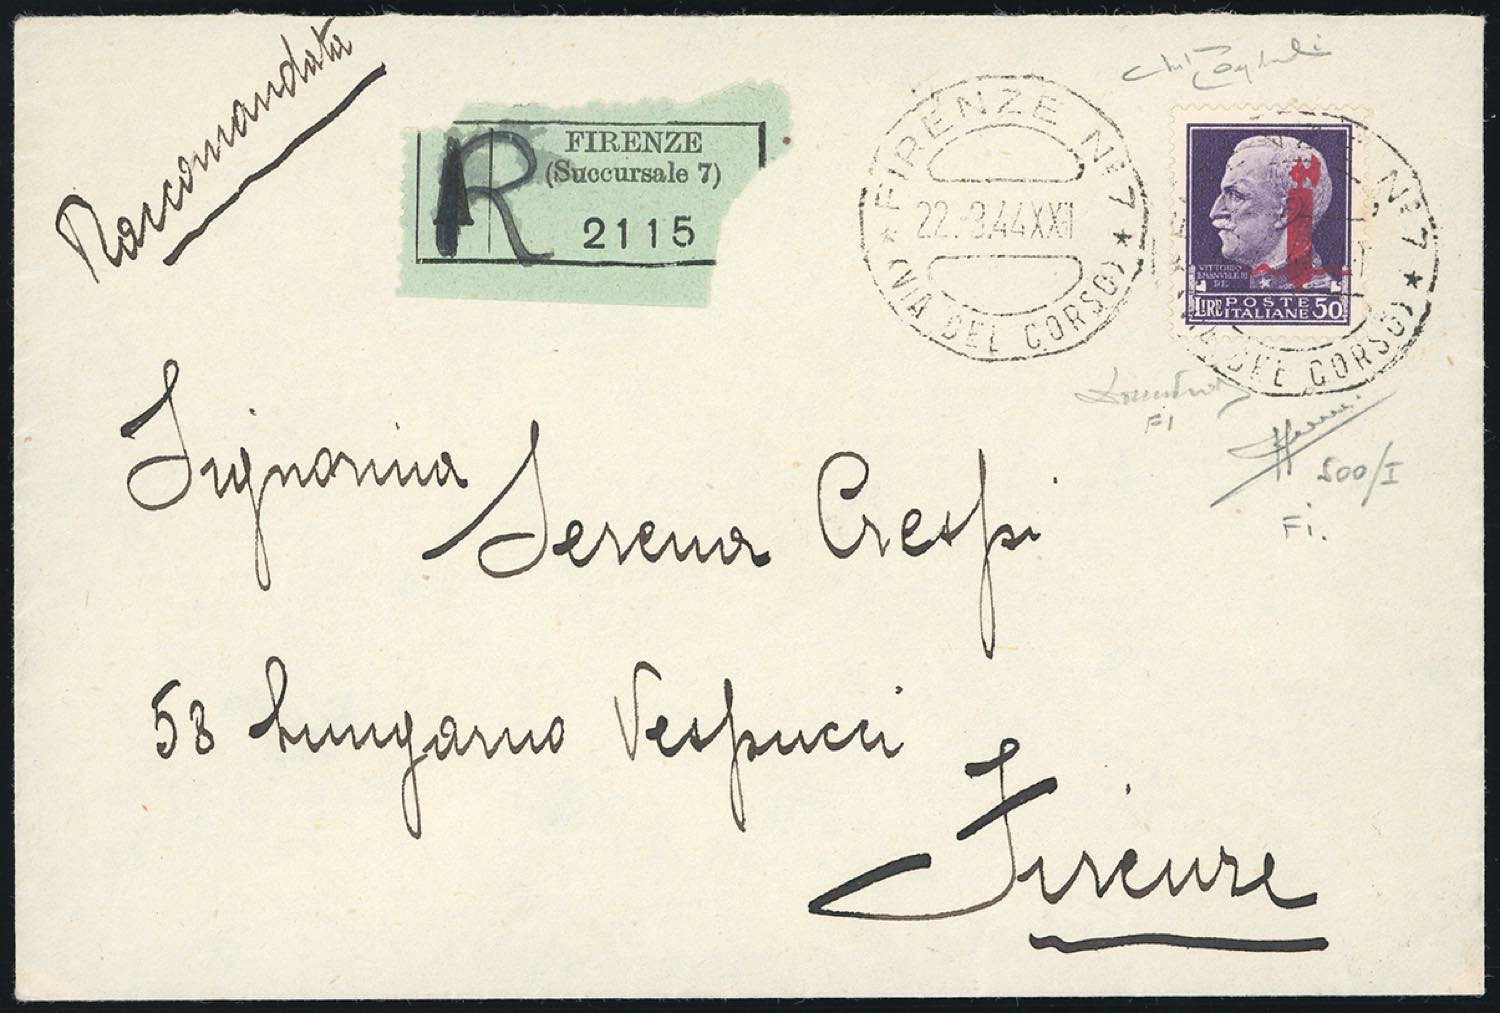 Raccomandata
R
FIRENZE
(Succursale 7)
2115
FIRENZE N. 7
22.-3.44XXII
(VIA DEL CORSO)
N. 7
DEL CORSO)
VITTORIO
EMANVELE III
RE
LIRE POSTE ITALIANE 50
FI
500/I
Fi.
Signorina
Serena Crespi
58 Lungarno Vespucci
Firenze